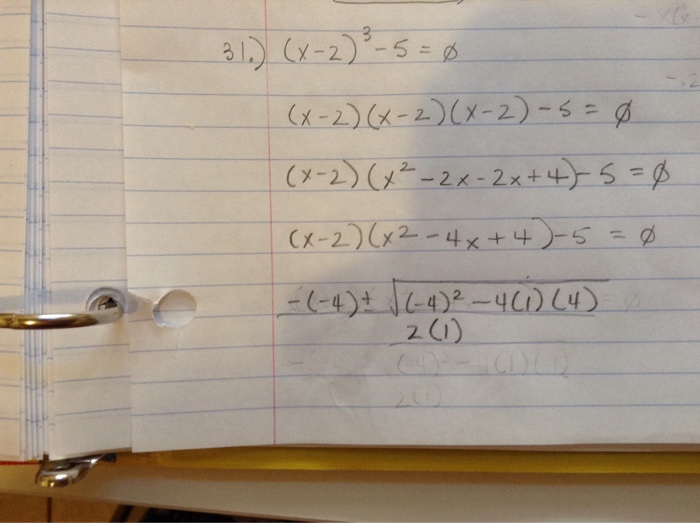 31.) (x-2)³ - 5 = ∅
(x-2)(x-2)(x-2) - 5 = ∅
(x-2)(x² - 2x - 2x + 4) - 5 = ∅
(x-2)(x² - 4x + 4) - 5 = ∅
-(-4) ± √(-4)² - 4(1)(4)
2(1)
(-4)² - 4(1)(1)
2(1)